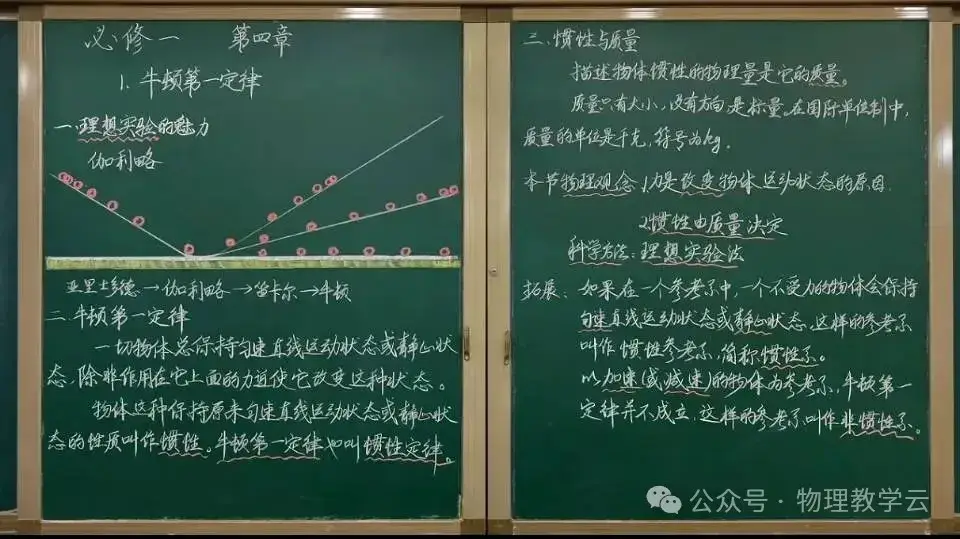 必修一 第四章
1. 牛顿第一定律
一.理想实验的魅力
伽利略
亚里士多德→伽利略→笛卡尔→牛顿
二.牛顿第一定律
一切物体总保持匀速直线运动状态或静止状
态,除非作用在它上面的力迫使它改变这种状态。
物体这种保持原来匀速直线运动状态或静止状
态的性质叫作惯性。牛顿第一定律也叫惯性定律。
三.惯性与质量
描述物体惯性的物理量是它的质量。
质量只有大小,没有方向是标量。在国际单位制中,
质量的单位是千克,符号为kg。
本节物理观念 1.力是改变物体运动状态的原因.
2.惯性由质量决定
科学方法:理想实验法
拓展:如果在一个参考系中,一个不受力的物体会保持
匀速直线运动状态或静止状态,这样的参考系
叫作惯性参考系,简称惯性系。
以加速(或减速)的物体为参考系,牛顿第一
定律并不成立,这样的参考系叫作非惯性系。
公众号·物理教学云